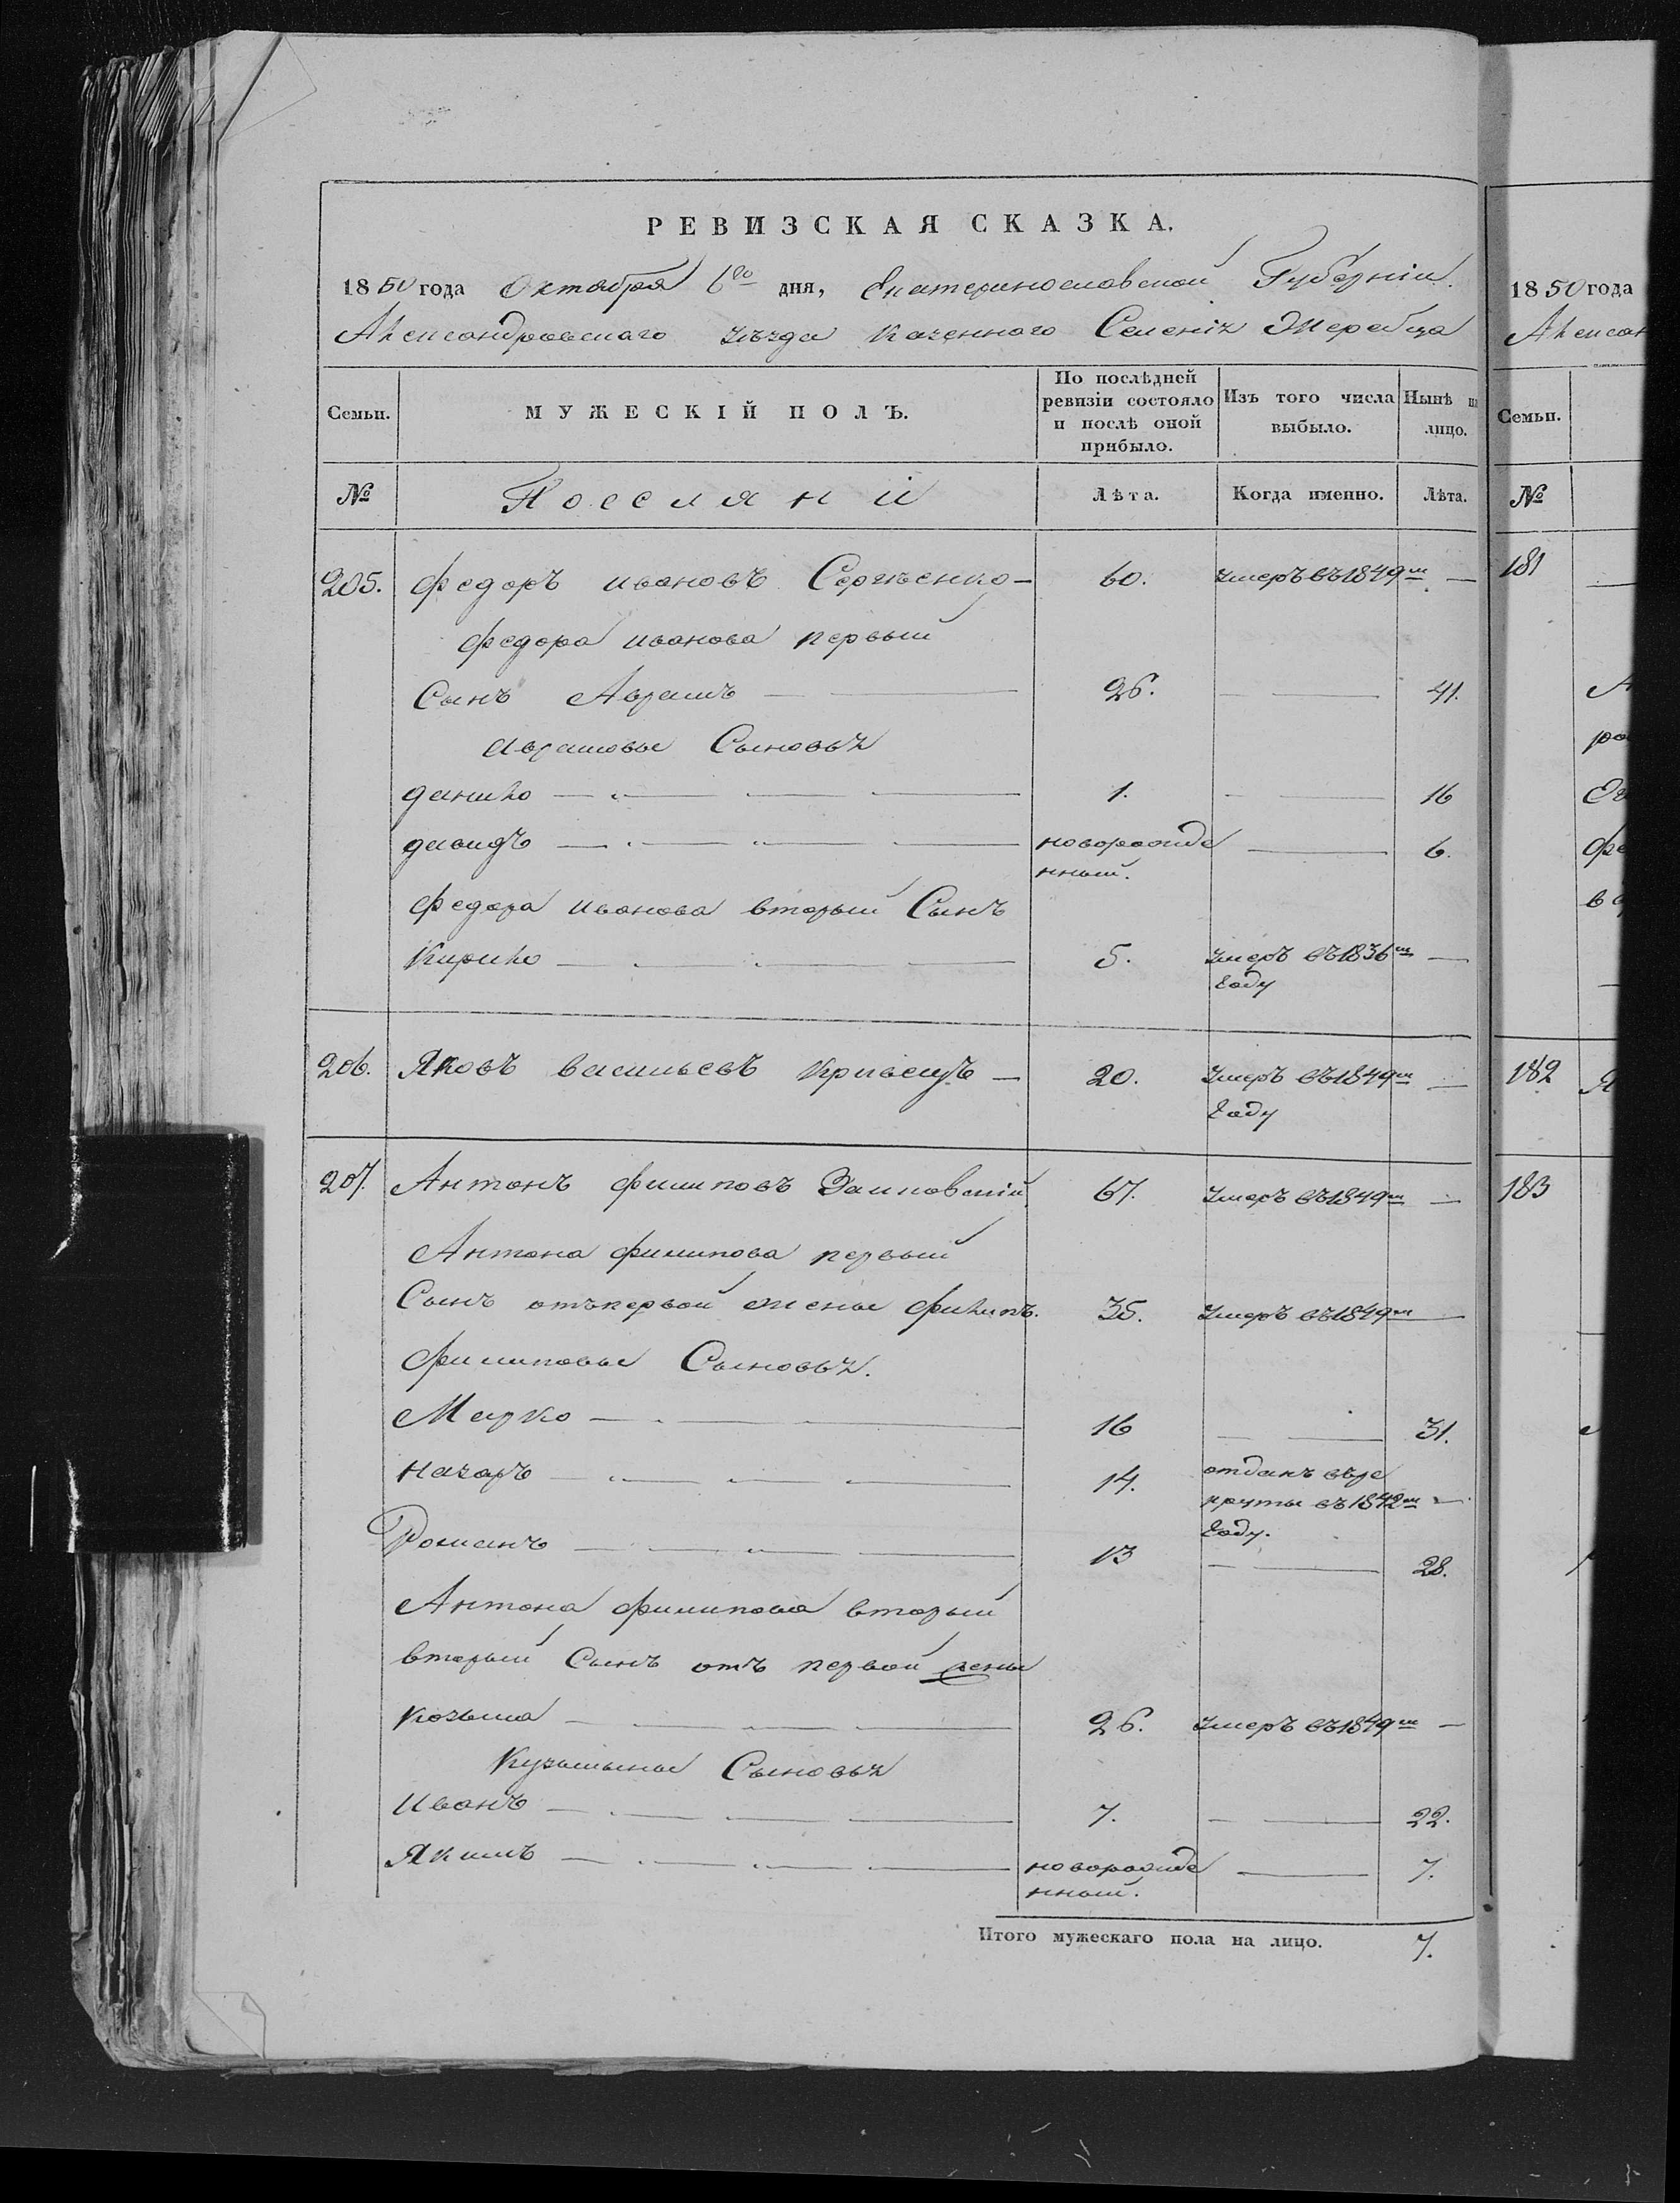 РЕВИЗСКАЯ СКАЗКА.
1850 года Октября 6го дня, Екатеринославской Губерніи.
Александровскаго уѣзда казенного Селенія Жеребца
Семьи. МУЖЕСКІЙ ПОЛЪ. По послѣдней ревизіи состояло и послѣ оной прибыло. Изъ того числа выбыло. Нынѣ на лицо.
№ Поселяни Лѣта. Когда именно. Лѣта.
205. Федоръ ивановъ Сергѣенко — 60. умеръ въ 1849м —
Федора иванова первый
Сынъ Аврамъ — 26. — 41.
Аврамовы Сыновья
данило — 1. — 16
давидъ — новорожде — 6.
нный.
Федора иванова вторый Сынъ
Кирило — 5. умеръ въ 1836м —
году
206. Яковъ васильевъ кривецъ — 20. умеръ въ 1849м —
году
207. Антонъ филиповъ 67. умеръ въ 1849м —
Антона филипова первый
Сынъ отъ первой жены филипъ. 35. умеръ въ 1849м —
филиповы Сыновья.
Марко — 16 — 31.
назаръ — 14. отданъ въ ре
круты въ 1842м —
году.
Романъ — 13 — 28.
Антона филипова вторый
вторый Сынъ отъ первой жены
козьма — 26. умеръ въ 1849м —
Кузьмины Сыновья
иванъ — 7. — 22.
Якимъ — новорожде — 7.
нный.
Итого мужескаго пола на лицо. 7.
1850 года
Алексан
Семьи.
№
181
182 Я
183